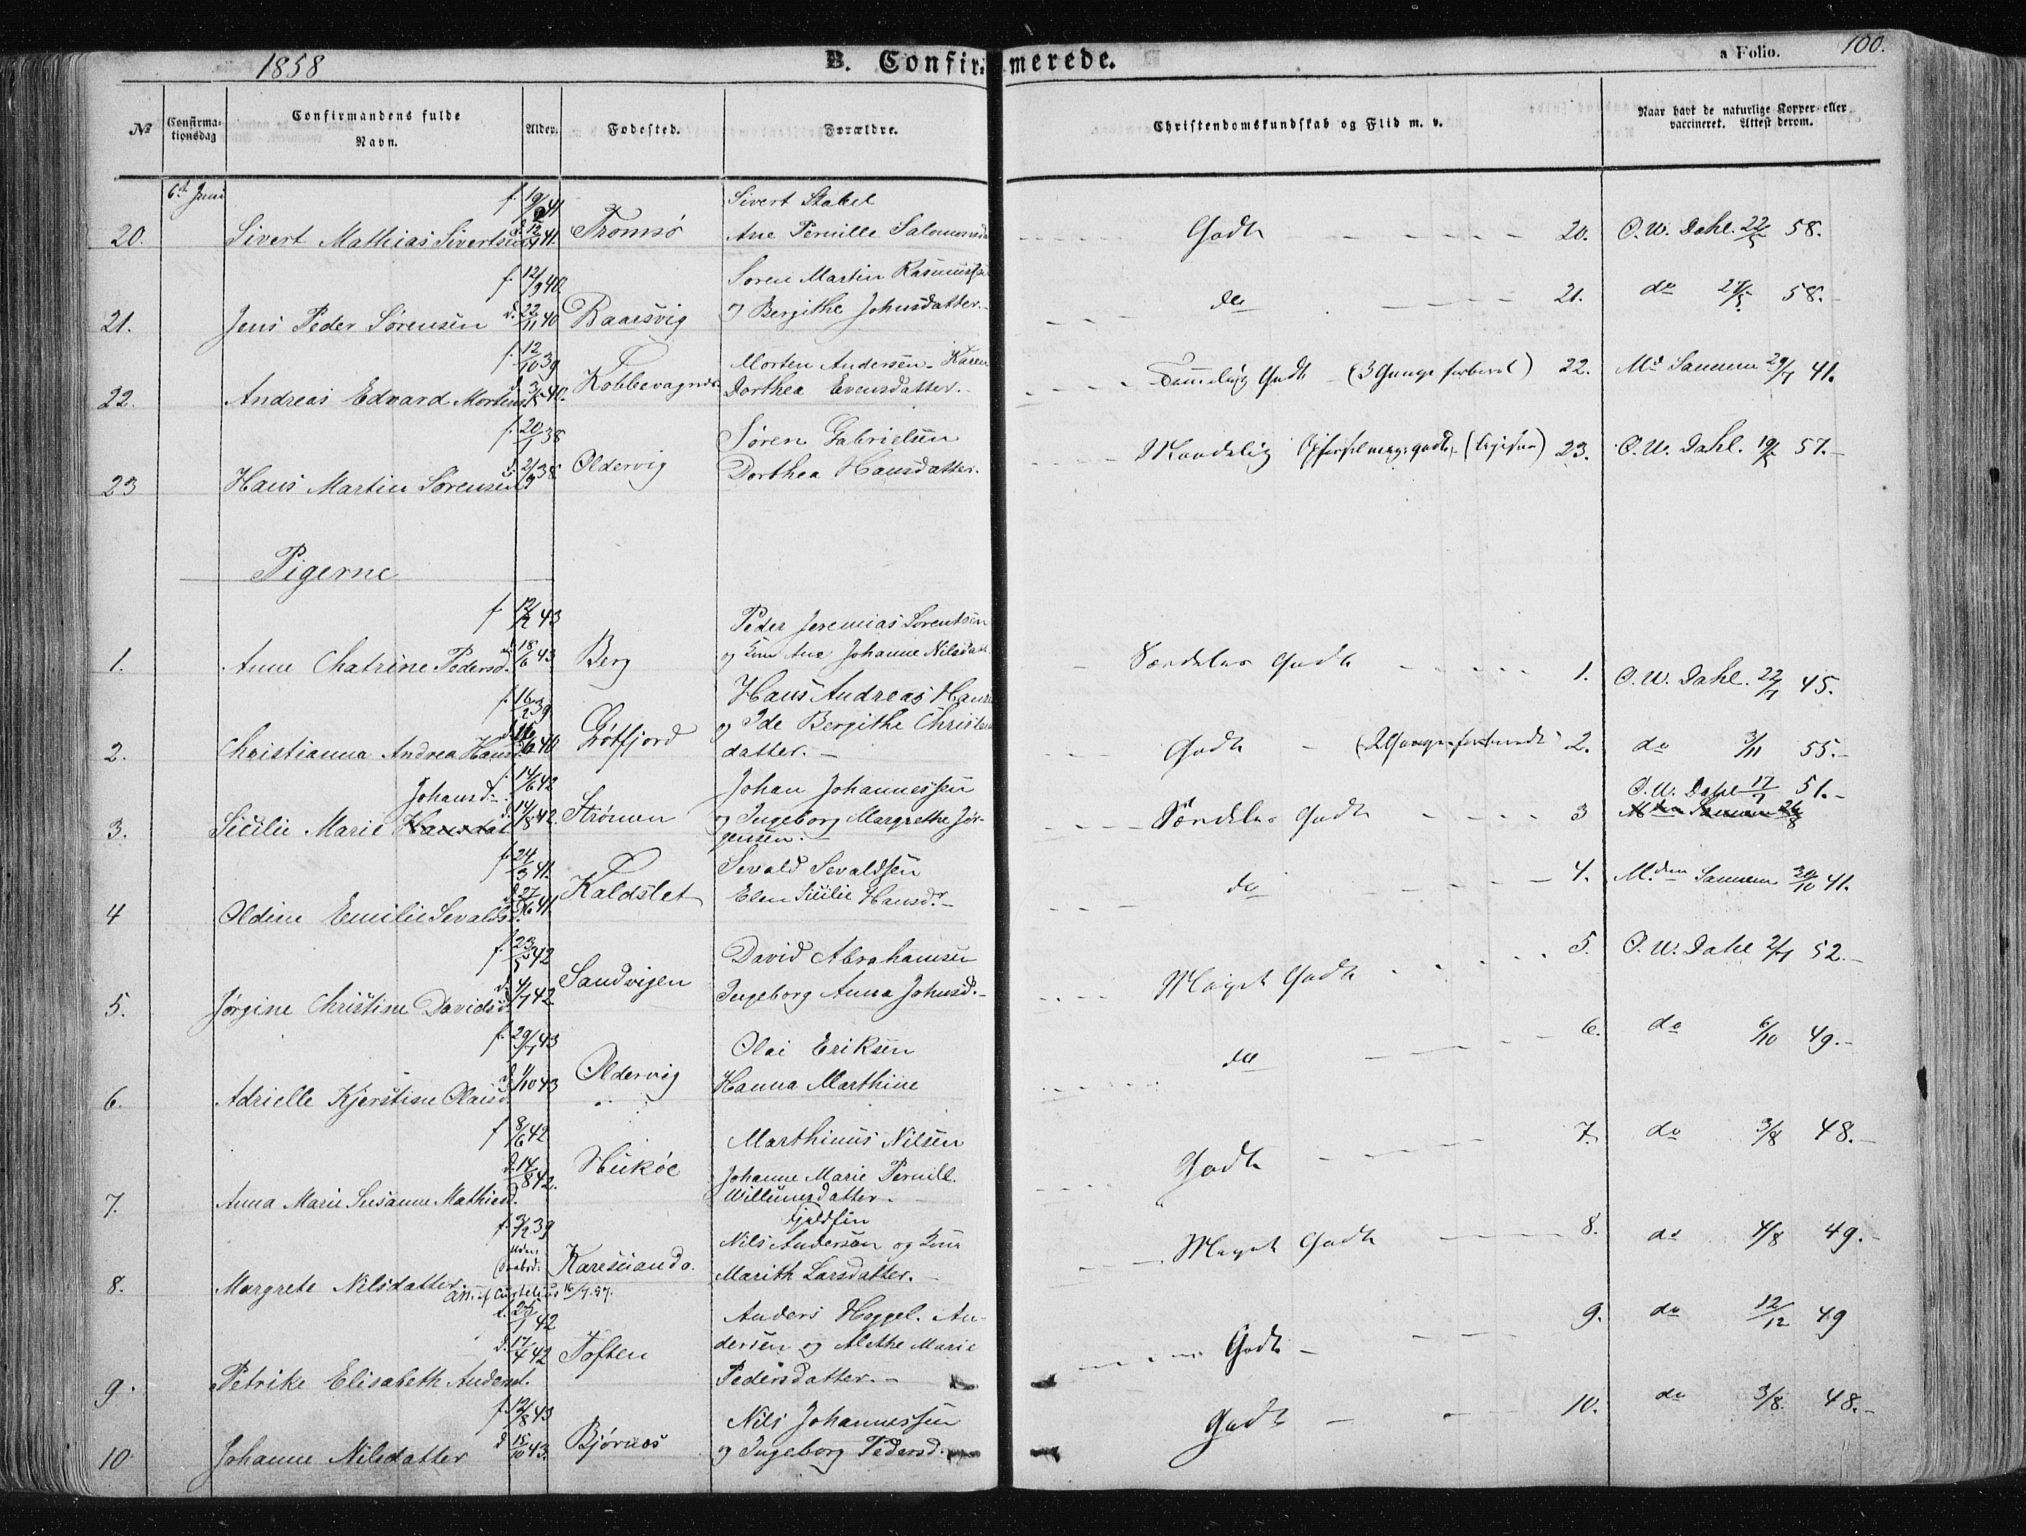 1858 B. Confirmerede. a Folio. 100.
No Confirmationsdag Confirmandens fulde Navn. Alder. Fødested. Forældre. Christendomskundskab og Flid m. v. Naar havt de naturlige Kopper eller vaccineret. Attest derom.
6t Juni f. 19/2 41 Sivert Stabel
20. Sivert Mathias Sivertsen 41. Tromsø Ane Pernille Salomonsd Godt 20. O. W. Dahl. 22/5 58.
f. 12/9 40. Søren Martin Rasmussen
21. Jens Peder Sørensen d. 22/11 40 Baaesvig og Bergithe Johnsdatter. do 21. do 27/5 58.
f. 12/10 39 Morten Andersen. Karen
22. Andreas Edvard Mortens d. 3/5 40. Kobbevagnes Dorthea Evensdatter. Temmelig Godt (3 Gange forberedt) 22. Md Sannem 29/7 41.
f. 20/1 38 Søren Gabrielsen
23 Hans Martin Sørensen d. 2/9 38 Oldervig Dorthea Hansdatter. Maadelig 23. O. W. Dahl. 19/5 57.
Pigerne
f. 12/2 43 Peder Jeremias Sørentsen
1. Anne Chatrine Pedersd. 18/6 43 Berg og Kone Ane Johanne Nilsdatt Særdeles Godt 1. O. W. Dahl. 22/7 45.
f. 16/2 39 Hans Andreas Hanse
2. Christianna Andrea Hansd 40 Grøtfjord og Ide Bergithe Christens
datter. Godt (2 Gange forberedt) 2. do 3/11 55.
Johansd. f. 14/6 42 Johan Johannessen O. W. Dahl 17/7 51.
3. Sicilie Marie Hansdat d. 14/8 42. Strømen og Ingeborg Margrethe Jør-
gensen. Særdeles Godt 3 Mdm Sannem 26/8
f. 24/3 41. Sevald Sevaldsen
4 Oldine Emilie Sevaldsd. d. 27/6 41. Kaldslet Elen Sicilie Hansdr. do 4. Mdm Sannem 30/10 41.
f. 23/5 42 David Abrahamsen
5. Jørgine Christine Davidsd. d. 4/7 42 Sandvigen Ingeborg Anna Johnsd. Meget Godt 5. O. W. Dahl 2/7 52.
f. 29/7 43 Olai Eriksen
6. Adrielle Kjerstine Olaisd. d. 1/10 43 Oldervig Hanna Marthine do 6. do 6/10 49.
f 8/6 42 Marthinus Nilsen
7. Anna Marie Susanne Mathiesd. d. 14/8 42. Hiikøe Johanne Marie Pernill.
Willumsdatter. Godt 7. do 3/8 48.
f. 3/2 39 Fjeldfin
Nils Andersen og Kone
8. Margrete Nilsdatter uden Daabsd. Karesuando. Marith Larsdatter. Meget Godt 8. do 4/8 49.
16/7.57.
f. 25/1 42 Anders Heggel. An-
d. 17/4 42 Toften dersen og Alethe Marie
9. Petrike Elisabeth Andersd. Pedersdatter. Godt 9. do 12/12 49
f. 12/8 43 Nils Johannessen
10. Johanne Nilsdatter d 15/10 43. Bjørnes og Ingeborg Pedersd. Godt 10. do 3/8. 48.